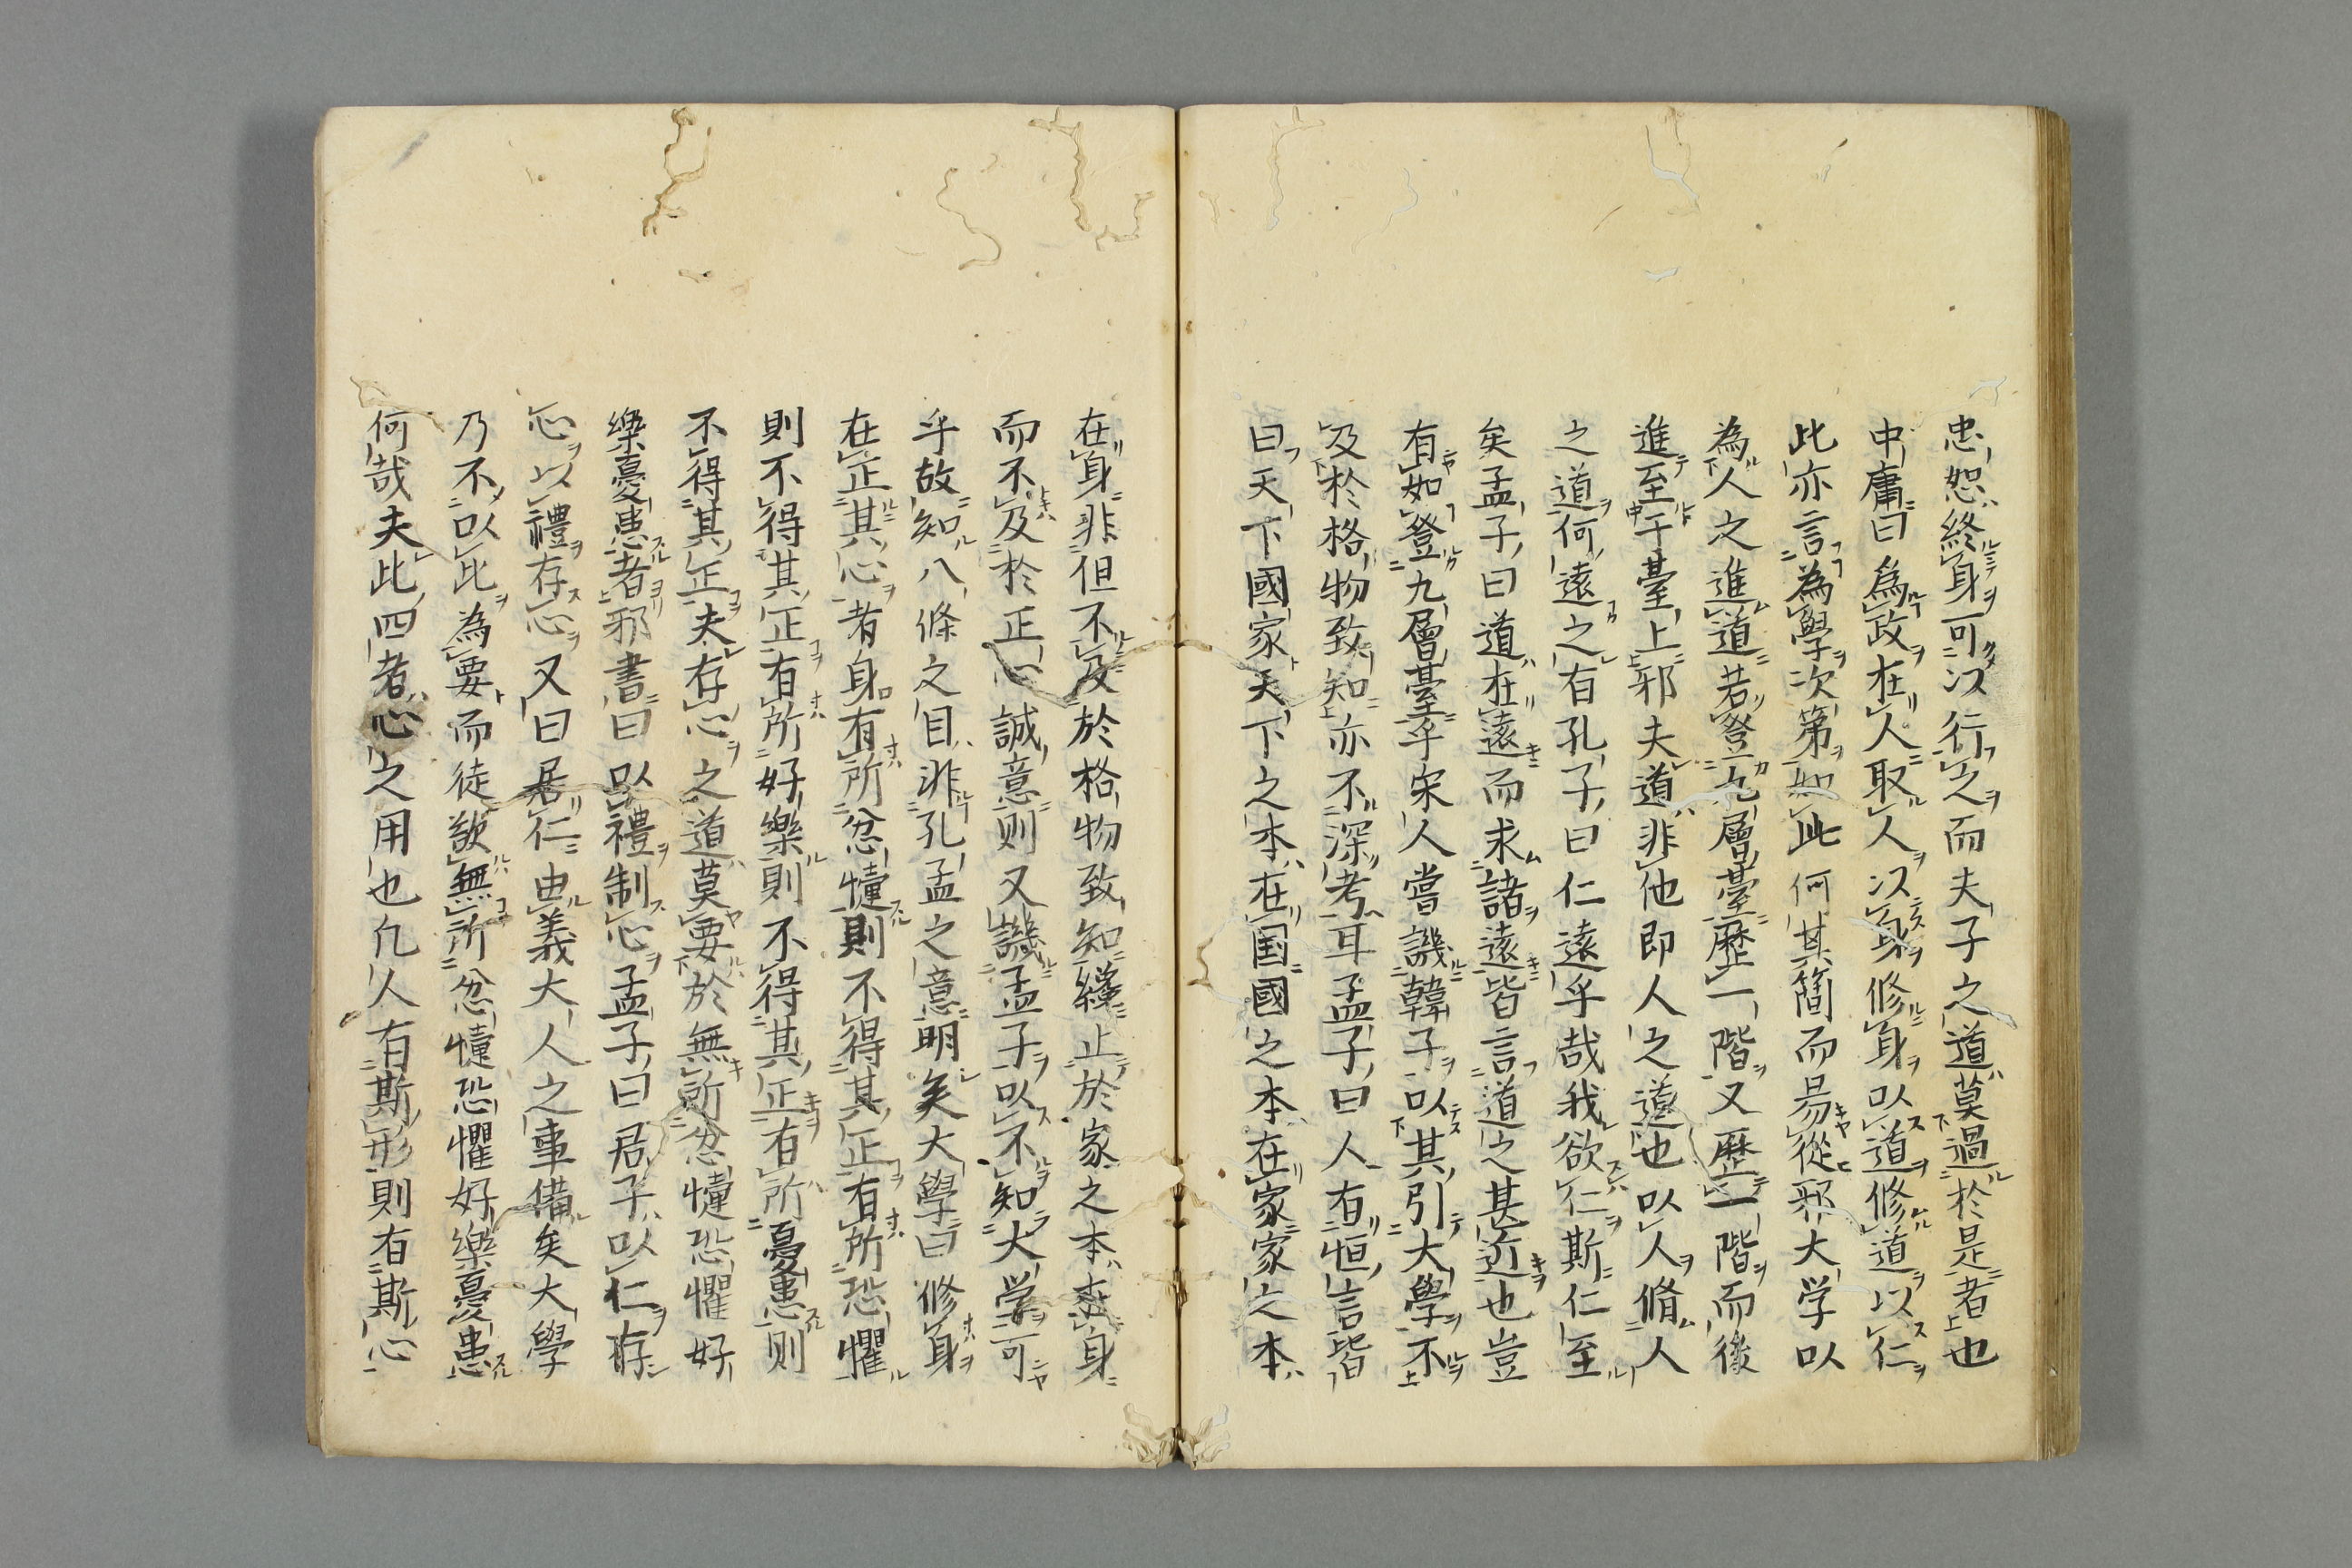 忠恕終身可以行之而夫子之道莫過於是者也
中庸曰為政在人取人以身修身以道修道以仁
此亦言為學次第如此何其簡而易從邪大学以
為人之進道若登九層臺歷一階又歷一階而後
進至于臺上邪夫道非他即人之道也以人脩人
之道何遠之有孔子曰仁遠乎哉我欲仁斯仁至
矣孟子曰道在邇而求諸遠皆言道之甚近也豈
有如登九層臺乎宋人嘗譏韓子以其引大學不
及於格物致知亦不深考耳孟子曰人有恒言皆
曰天下國家天下之本在国國之本在家家之本
在身非但不及於格物致知纔止於家之本在身
而不及於正心誠意則又譏孟子以不知大学可
乎故知八條之目非孔孟之意明矣大學曰修身
在正其心者身有所忿懥則不得其正有所恐懼
則不得其正有所好樂則不得其正有所憂患則
不得其正夫存心之道莫要於無所忿懥恐懼好
樂憂患者邪書曰以禮制心孟子曰君子以仁存
心以禮存心又曰居仁由義大人之事備矣大學
乃不以此為要而徒欲無所忿懥恐懼好樂憂患
何哉夫此四者心之用也凡人有斯形則有斯心